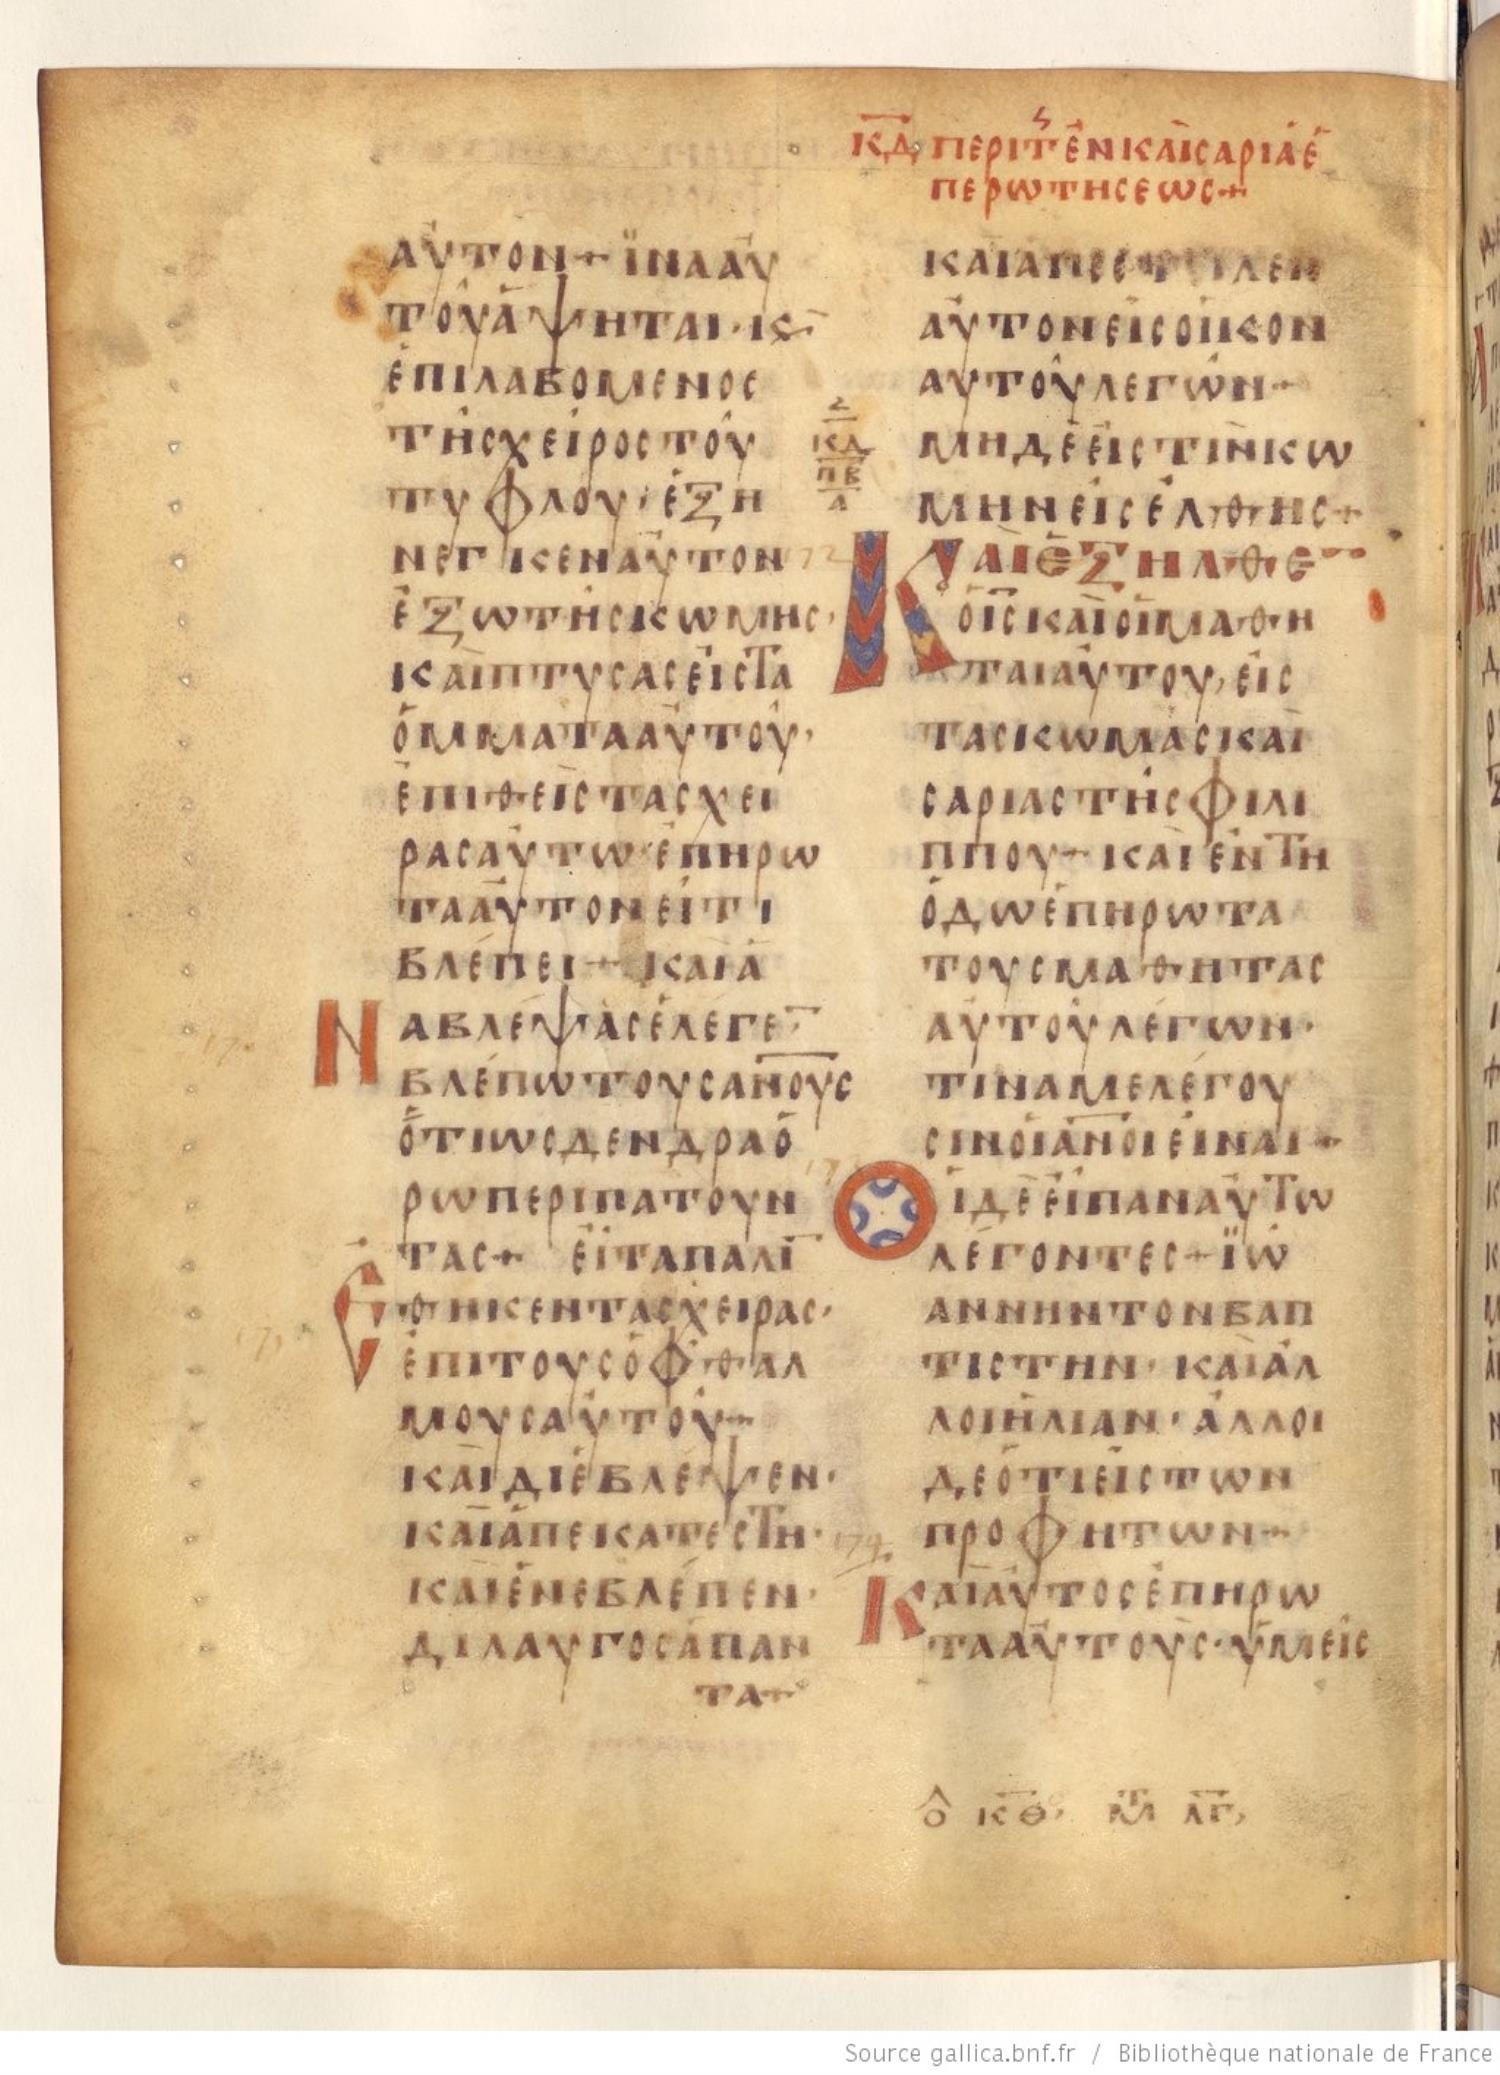 κ̅δ̅ περιτ̅ ἐνκαισαριαἐ
περωτησεως+
αὐτον+ ϊνααὐ
τοῦἅψηται·ι̅ς̅
ἐπιλαβομενος
τῆςχειρὸςτοῦ
τυφλου·ἐξη
νεγκεναὐτον
ἔξωτῆςκωμης·
καὶπτυσαςεἰςτα
ὄμματααὐτοῦ·
ἐπιθεὶςταςχει
ραςαὐτωἐπηρω
τααὐτονεἴτι
βλέπει+ καὶἀ
ναβλέψαςἔλεγε̅
βλέπωτουςαν̅ους
ὅτιωςδενδραὁ
ρωπεριπατουν
τας+ εἶταπαλι̅
ἐθηκενταςχεῖρας·
ἐπιτουςὀφθαλ
μουςαὐτοῦ+
καὶδιέβλεψεν·
καὶἀπεκατεστη·
καὶἐνεβλέπεν·
διλαυγοςἅπαν
τα+
ς
κδ
πβ
δ
καὶαπεστιλεν
αὐτονεἰςοἶκον
αυτοῦλεγων+
μηδὲεἰςτὴνκω
μηνεἰσέλθης+
Καὶἐξηλθε̅
ὁι̅ς̅καὶοἱμαθη
ταιαὐτου,εἰς
ταςκωμὰςκαὶ
σαριαςτῆςφιλι
ππου+καὶἐντη
ὁδωἐπηρωτα
τουςμαθητας
αὐτοῦλέγων·
τιναμελέγου
σινοἱα̅ν̅οιεἶναι+
Οἱδὲεἶπαναὐτω
λέγοντες+ϊω
αννηντονβαπ
τιστην·καὶἄλ
λοιἡλιαν·ἄλλοι
δεὅτιεἷςτων
προφητων+
Καὶαὐτοςἐπηρω
τααὐτοὺς·ὑμεῖς
ο̂ κ̅θ̅, μτ λ̅γ̅,
Source gallica.bnf.fr / Bibliothèque nationale de France